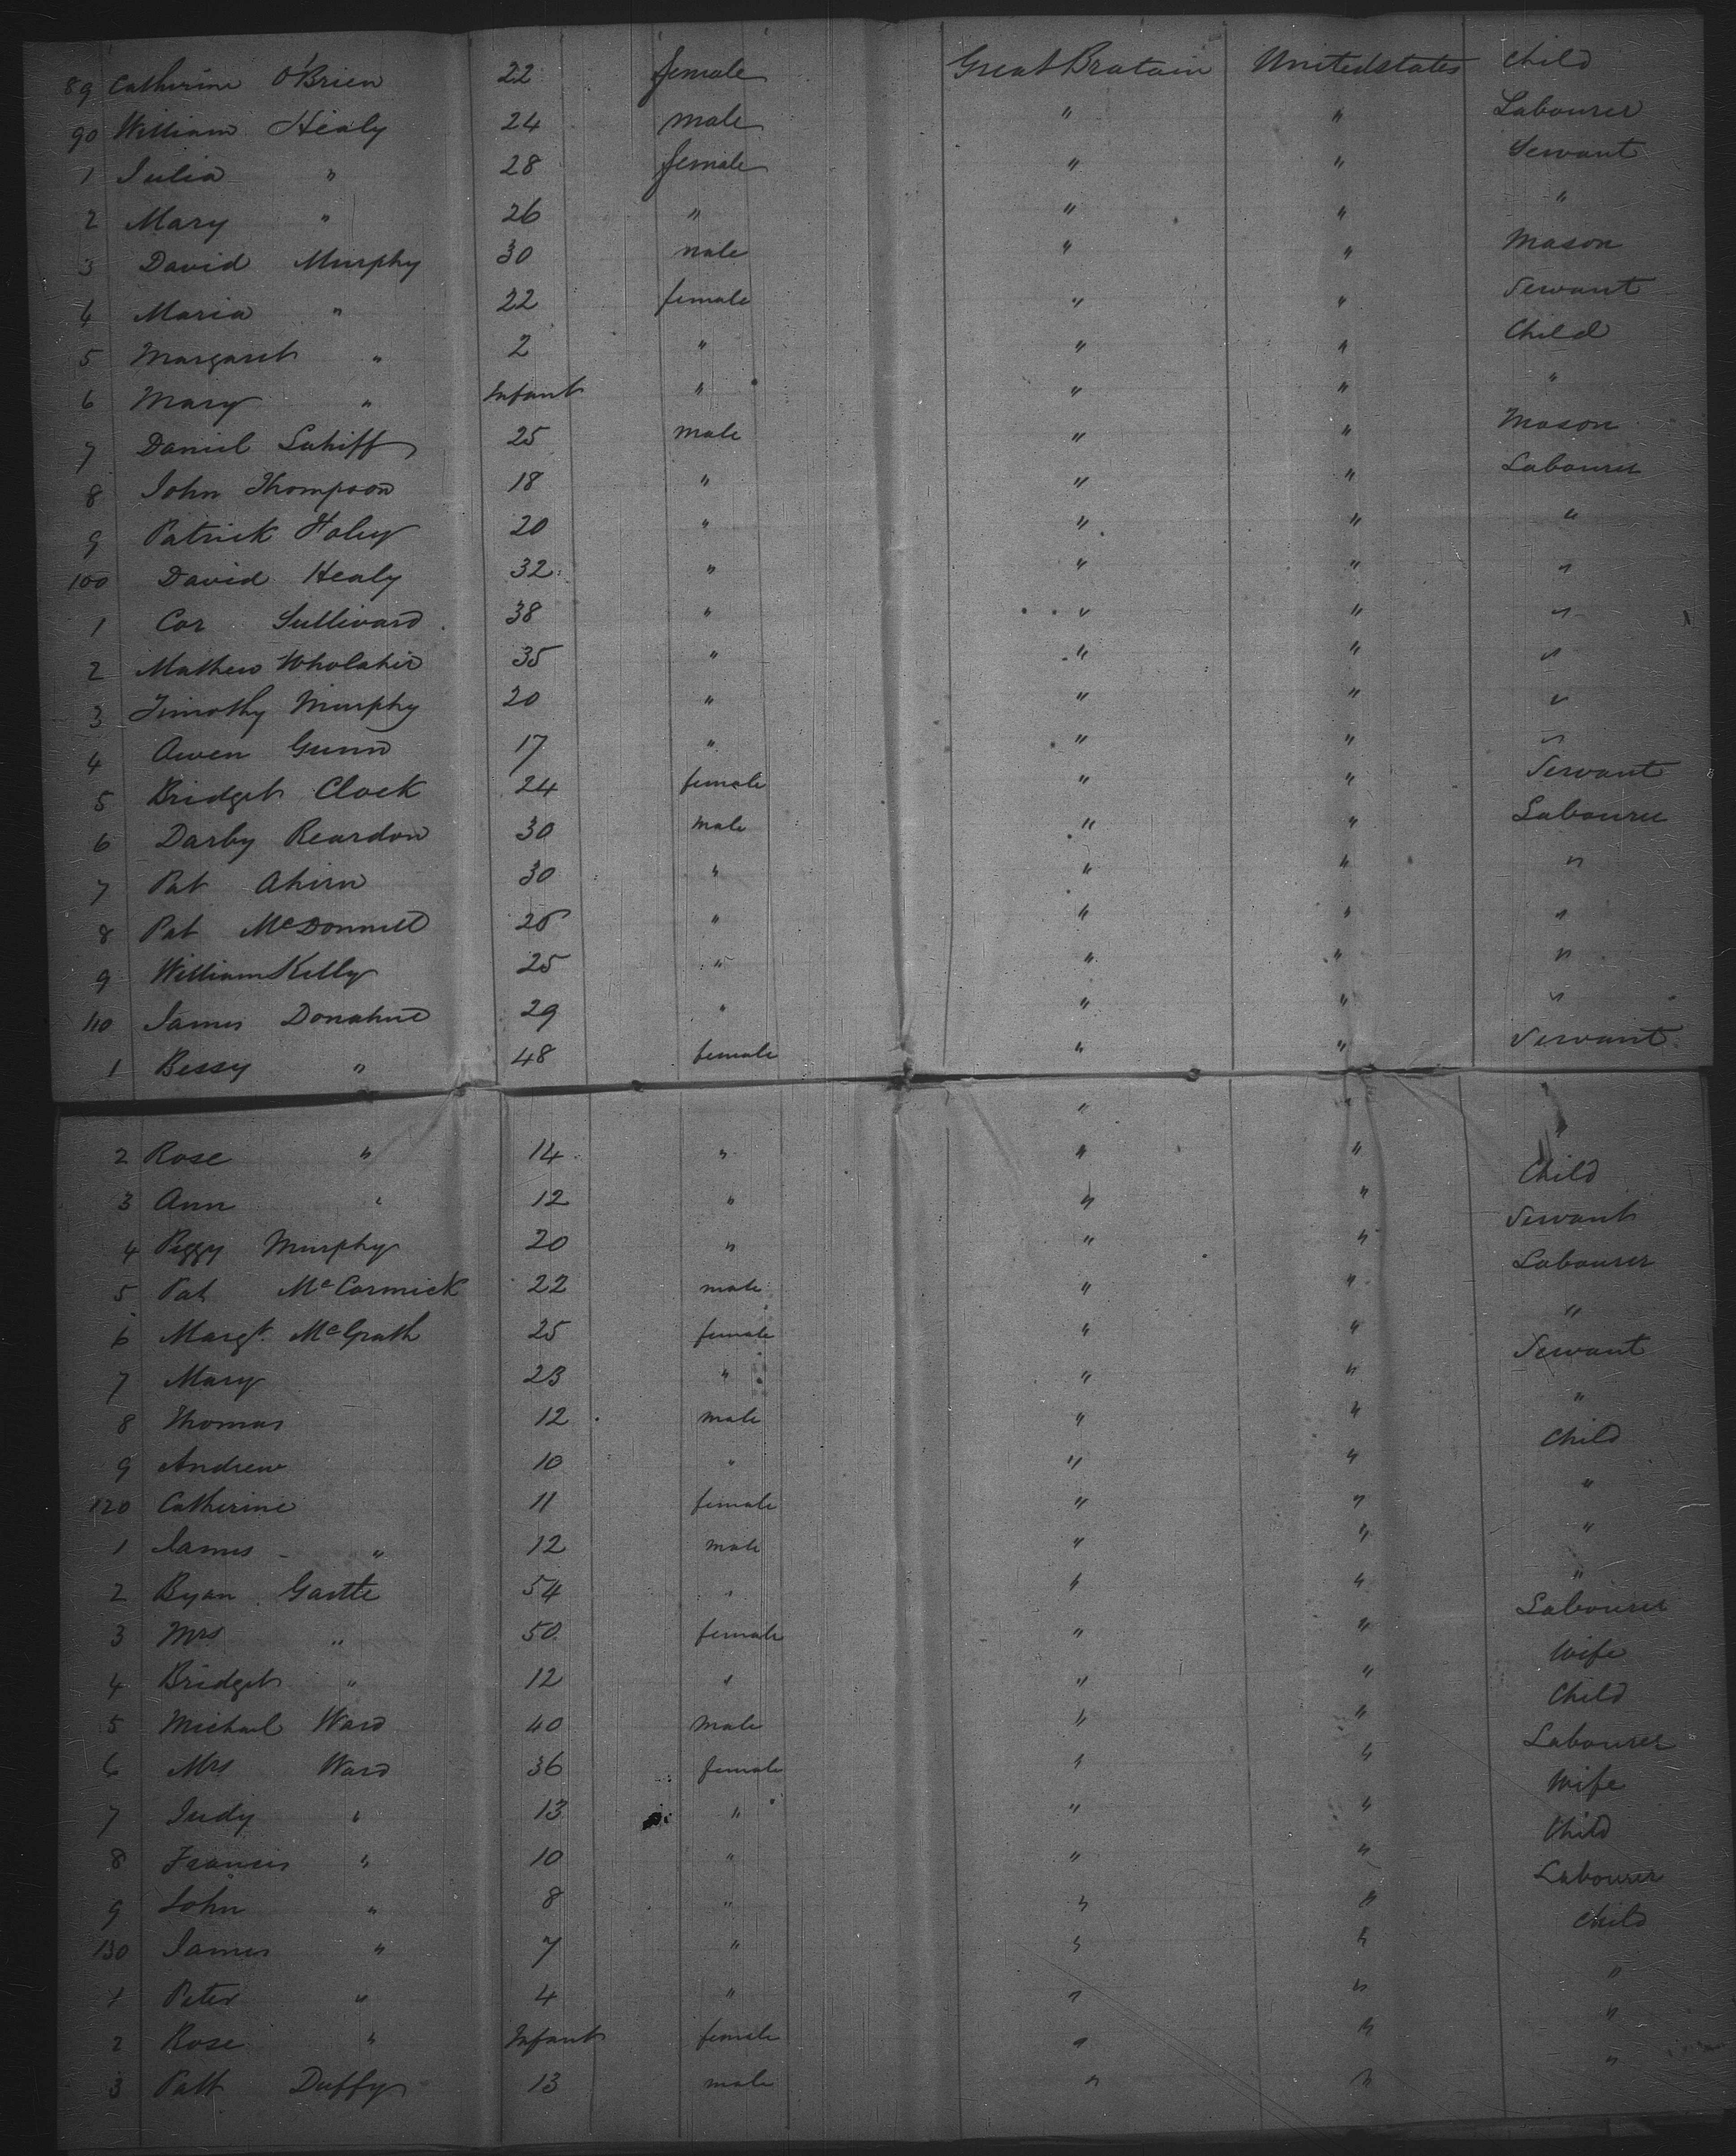 89 Catherine O'Brien 22 female Great Bratain Unitedstates Child
90 William Healy 24 male " " Labourer
1 Julia " 28 female " " Servant
2 Mary " 26 " " " "
3 David Murphy 30 male " " Mason
4 Maria " 22 female " " Servant
5 Margaret " 2 " " " Child
6 Mary " Infant " " " "
7 Daniel Lahiff 25 male " " Mason
8 John Thompson 18 " " " Labourer
9 Patrick Foley 20 " " " "
100 David Healy 32 " " " "
1 Cor Sullivan 38 " " " "
2 Mathew 35 " " " "
3 Timothy Murphy 20 " " " "
4 Owen Gunn 17 " " " "
5 Bridget Clock 24 female " " Servant
6 Darby Reardon 30 male " " Labourer
7 Pat Ahern 30 " " " "
8 Pat McDonnell 26 " " " "
9 William Kelly 25 " " " "
110 James Donahue 29 " " " "
1 Bessy " 48 female " " Servant
" " "
2 Rose " 14 " " " Child
3 Ann " 12 " " " Servant
4 Peggy Murphy 20 " " " Labourer
5 Pat McCormick 22 male " " "
6 Margt. McGrath 25 female " " Servant
7 Mary 23 " " " "
8 Thomas 12 male " " Child
9 Andrew 10 " " " "
120 Catherine 11 female " " "
1 James - " 12 male " " "
2 Byan 54 " " " Labourer
3 Mrs " 50 female " " Wife
4 Bridget " 12 " " " Child
5 Michael Ward 40 male " " Labourer
6 Mrs Ward 36 female " " Wife
7 Judy " 13 " " " Child
8 Francis " 10 " " " Labourer
9 John " 8 " " " Child
130 James " 7 " " " "
1 Peter " 4 " " " "
2 Rose " Infant female " " "
3 Patt Duffy 13 male " "